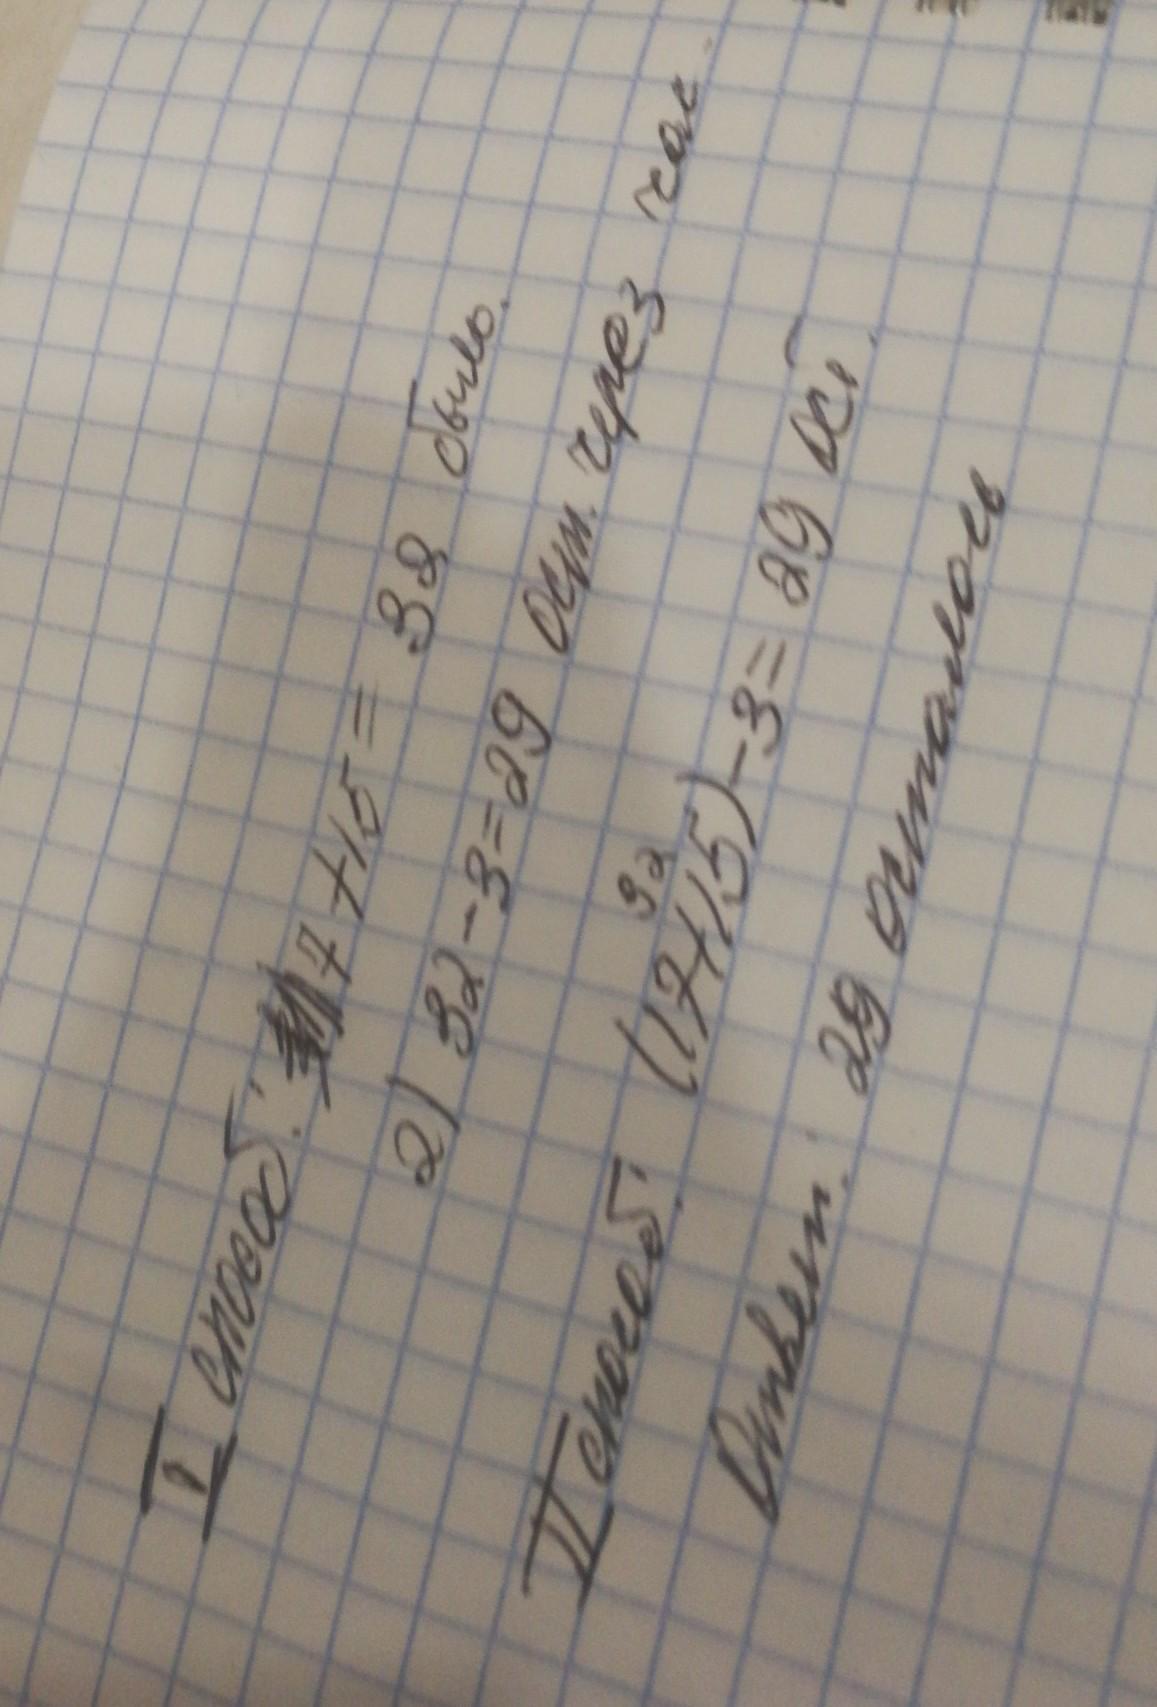 I способ: 17+15= 32 было.
2) 32-3=29 ост. через час.
II способ: (17+15)-3=29 ост.
32
Ответ: 29 осталось